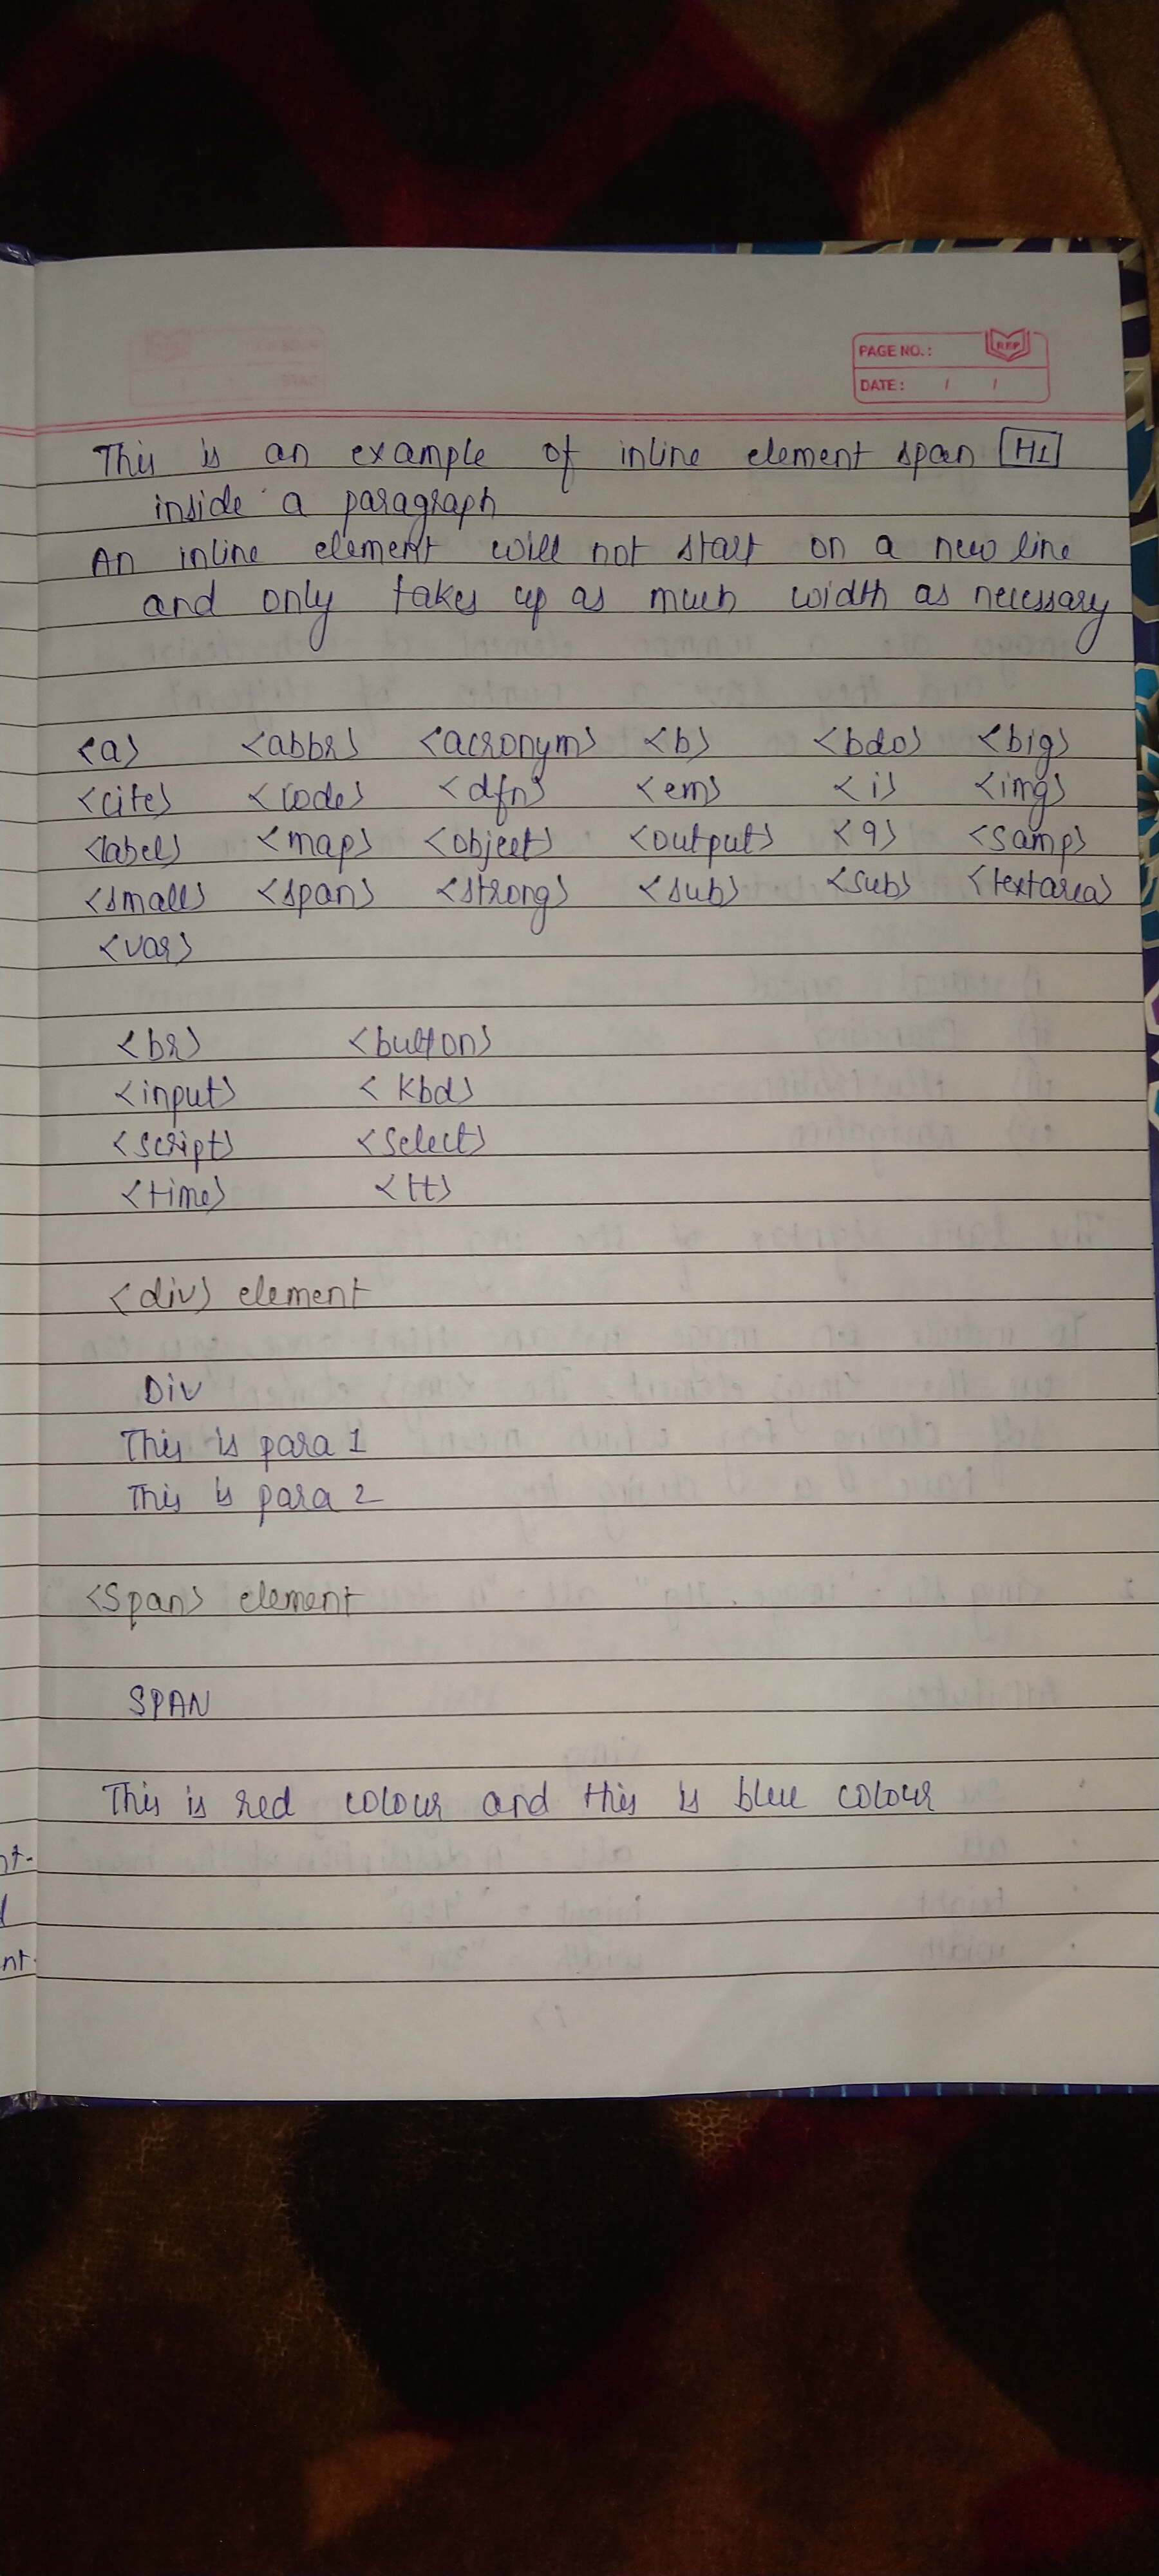 PAGE NO.:
REP
DATE: / /
This is an example of inline element span H1
inside a paragraph
An inline element will not start on a new line
and only takes up as much width as necessary
<a> <abbr> <acronym> <b> <bdo> <big>
<cite> <code> <dfn> <em> <i> <img>
<label> <map> <object> <output> <q> <samp>
<small> <span> <strong> <sub> <sub> <textarea>
<var>
<br> <button>
<input> <kbd>
<script> <select>
<time> <tt>
<div> element
Div
This is para 1
This is para 2
<Span> element
SPAN
This is red colour and this is blue colour
nt.
nt.